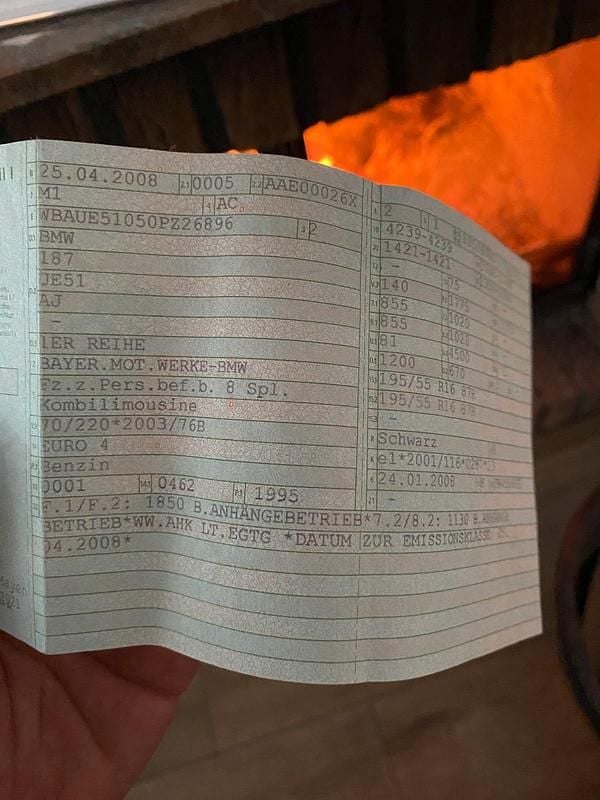 25.04.2008 2.1 0005 2.2 AAE00026X
M1 4 AC
WBAUE51050PZ26896 3 2
BMW
187
JE51
AJ
-
1ER REIHE
BAYER.MOT.WERKE-BMW
Fz.z.Pers.bef.b. 8 Spl.
Kombilimousine
70/220*2003/76B
EURO 4
Benzin
0001 14.1 0462 P.1 1995
2 1
4239-4239
1421-1421
-
140 75
855 1775
855 1020
81 1020
1200 4500
670
195/55 R16 87H
195/55 R16 87H
-
Schwarz
e1*2001/116*
24.01.2008
-
F.1/F.2: 1850 B.ANHÄNGEBETRIEB*7.2/8.2: 1130 B.ANHÄNGE
BETRIEB*WW.AHK LT.EGTG *DATUM ZUR EMISSIONSKLASSE
04.2008*
Mayen